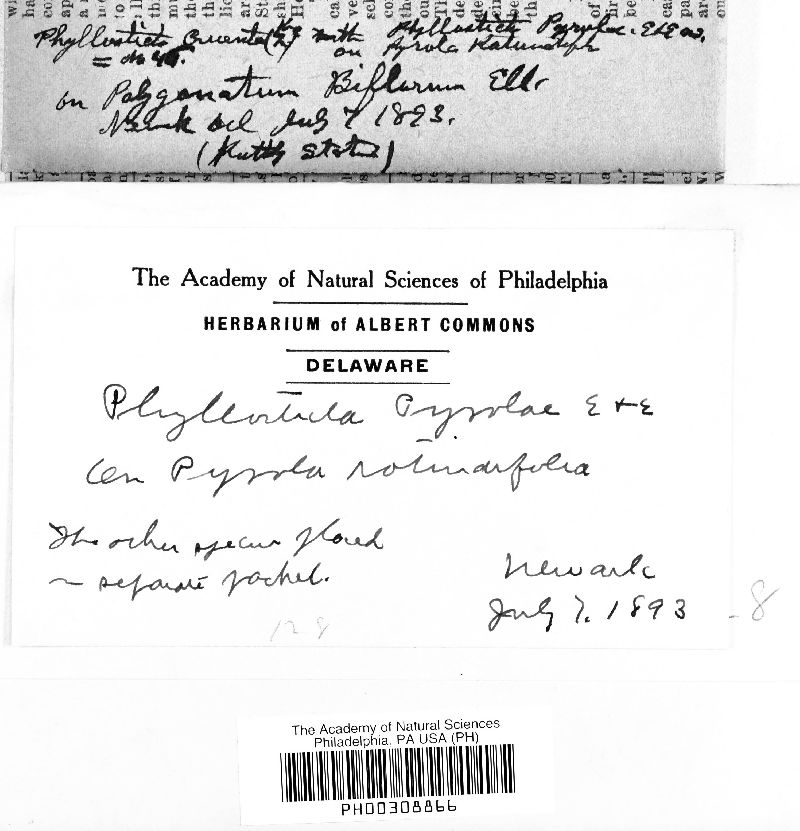 Phyllosticta Cruenta (Fr) with Phyllosticta Pyrolae. E&Ev.
= No 49. on Pyrola Rotundifolia
on Polygonatum Biflorum Ell.
Newark Del July 7 1893.
The Academy of Natural Sciences of Philadelphia
HERBARIUM of ALBERT COMMONS
DELAWARE
Phyllosticta Pyrolae E & E
on Pyrola rotundifolia
The other specim placed
in separate packet.
Newark
July 7. 1893
-8
128
The Academy of Natural Sciences
Philadelphia, PA USA (PH)
PH00308866